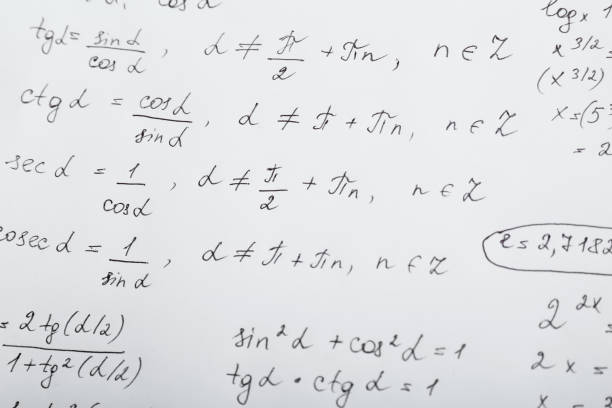 cos α
tgα = sin α / cos α , α ≠ π/2 + πn, n ∈ Z
ctg α = cos α / sin α , α ≠ π + πn, n ∈ Z
sec α = 1 / cos α , α ≠ π/2 + πn, n ∈ Z
cosec α = 1 / sin α , α ≠ π + πn, n ∈ Z
= 2 tg(α/2) / 1 + tg²(α/2)
sin²α + cos²α = 1
tgα · ctg α = 1
log x 1
x^3/2 =
(x^3/2)
x = (5³
= 2
e = 2,7182
2^2x =
2x =
x =